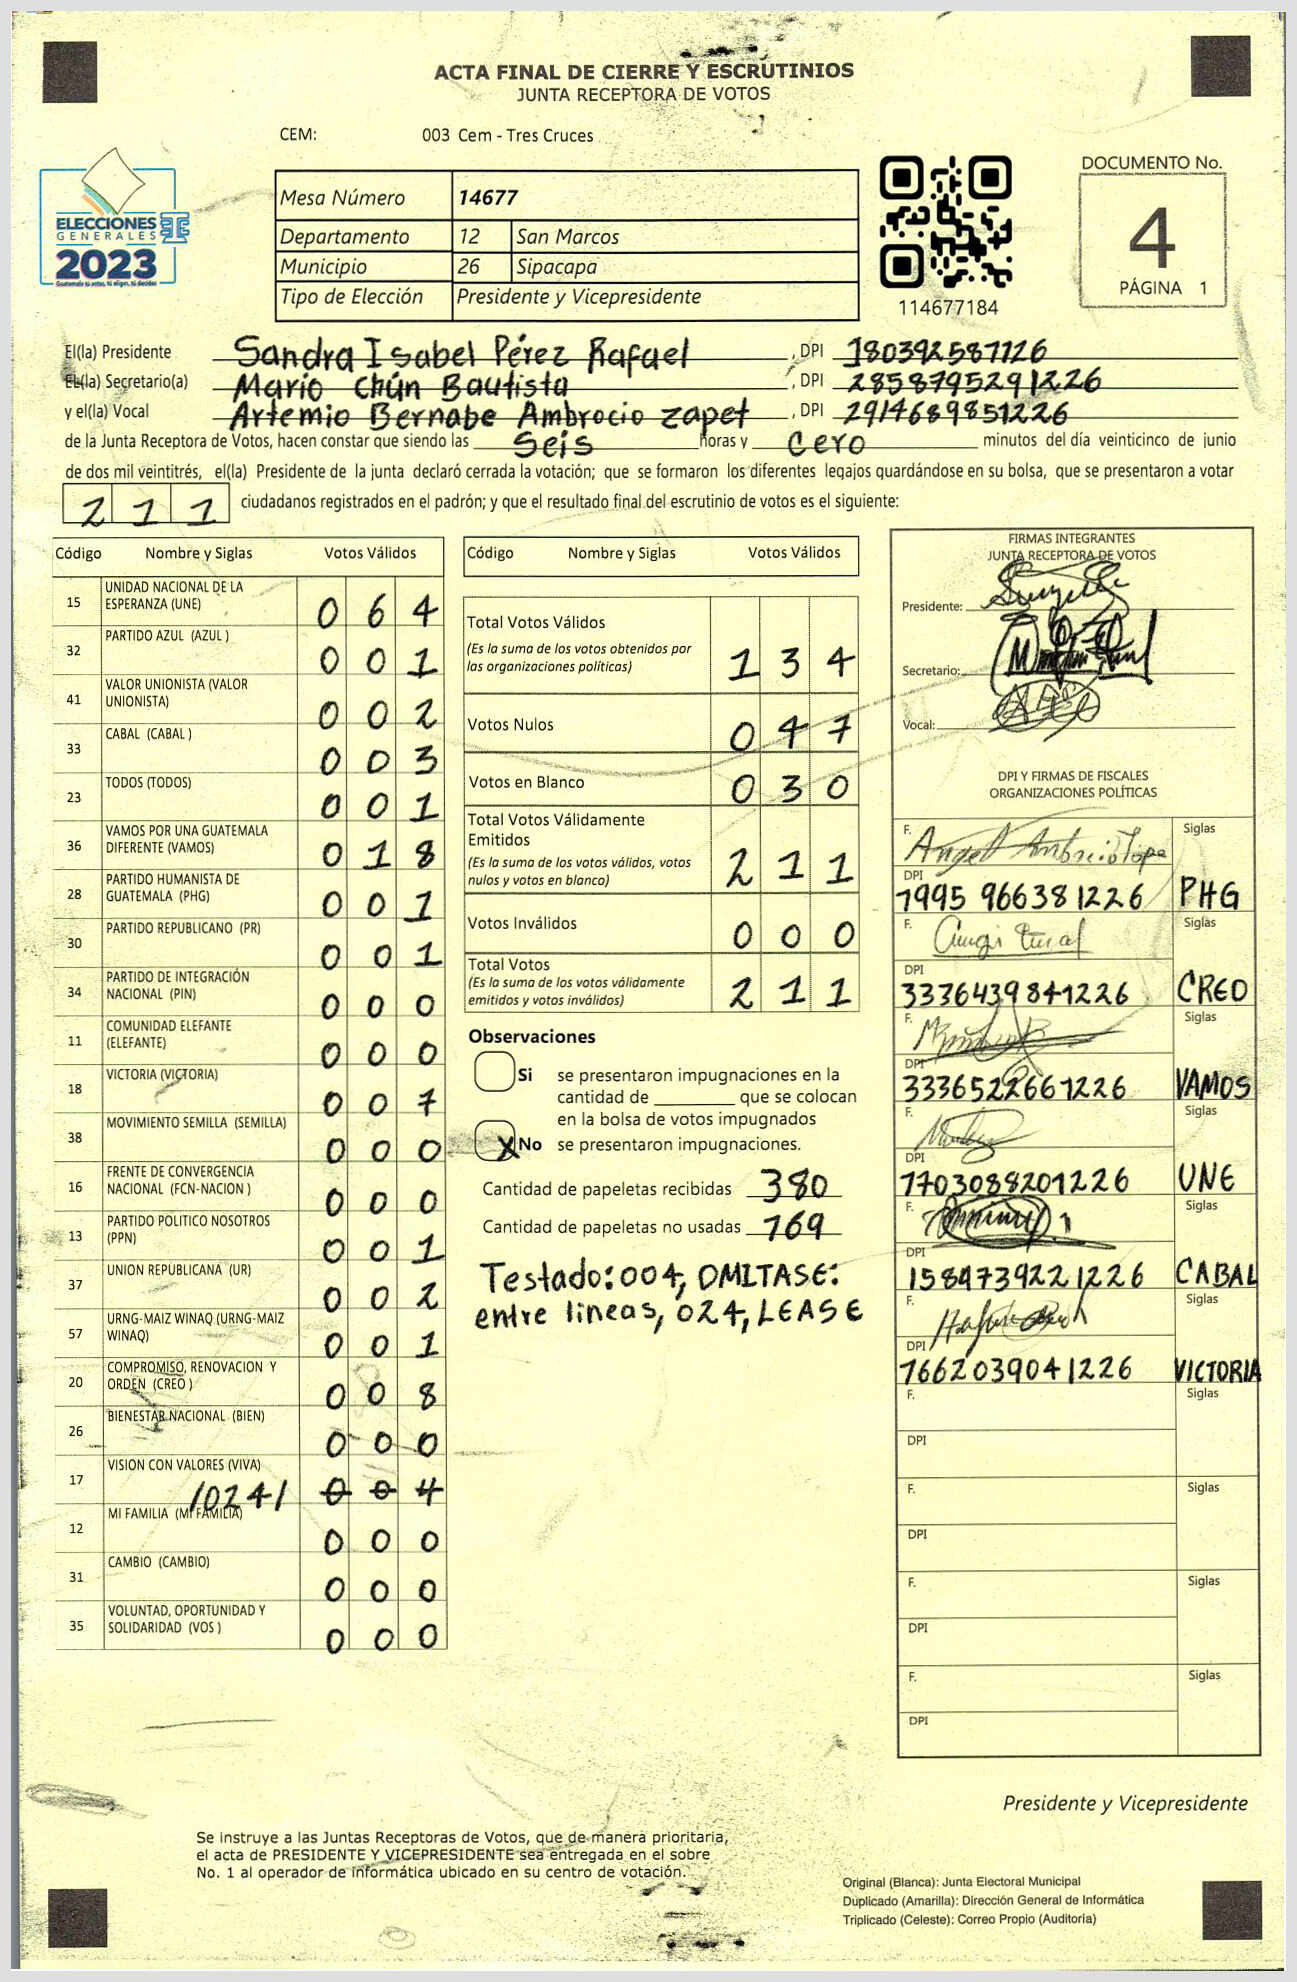 ACTA FINAL DE CIERRE Y ESCRUTINIOS
JUNTA RECEPTORA DE VOTOS
CEM: 003 Cem - Tres Cruces
ELECCIONES
GENERALES
2023
Guatemala tú votas, tú eliges, tú decides
Mesa Número 14677
Departamento 12 San Marcos
Municipio 26 Sipacapa
Tipo de Elección Presidente y Vicepresidente
114677184
DOCUMENTO No.
4
PÁGINA 1
El(la) Presidente Sandra Isabel Pérez Rafael, DPI 180392587126
El(la) Secretario(a) Mario Chún Bautista, DPI 2858795291226
y el(la) Vocal Artemio Bernabe Ambrocio Zapet, DPI 2914689851226
de la Junta Receptora de Votos, hacen constar que siendo las Seis horas y Cero minutos del día veinticinco de junio
de dos mil veintitrés, el(la) Presidente de la junta declaró cerrada la votación; que se formaron los diferentes legajos quardándose en su bolsa, que se presentaron a votar
211 ciudadanos registrados en el padrón; y que el resultado final del escrutinio de votos es el siguiente:
Código Nombre y Siglas Votos Válidos
15 UNIDAD NACIONAL DE LA ESPERANZA (UNE) 0 6 4
32 PARTIDO AZUL (AZUL ) 0 0 1
41 VALOR UNIONISTA (VALOR UNIONISTA) 0 0 2
33 CABAL (CABAL ) 0 0 3
23 TODOS (TODOS) 0 0 1
36 VAMOS POR UNA GUATEMALA DIFERENTE (VAMOS) 0 1 8
28 PARTIDO HUMANISTA DE GUATEMALA (PHG) 0 0 1
30 PARTIDO REPUBLICANO (PR) 0 0 1
34 PARTIDO DE INTEGRACIÓN NACIONAL (PIN) 0 0 0
11 COMUNIDAD ELEFANTE (ELEFANTE) 0 0 0
18 VICTORIA (VICTORIA) 0 0 7
38 MOVIMIENTO SEMILLA (SEMILLA) 0 0 0
16 FRENTE DE CONVERGENCIA NACIONAL (FCN-NACION ) 0 0 0
13 PARTIDO POLITICO NOSOTROS (PPN) 0 0 1
37 UNION REPUBLICANA (UR) 0 0 2
57 URNG-MAIZ WINAQ (URNG-MAIZ WINAQ) 0 0 1
20 COMPROMISO, RENOVACION Y ORDEN (CREO ) 0 0 8
26 BIENESTAR NACIONAL (BIEN) 0 0 0
17 VISION CON VALORES (VIVA) /024/ 0 0 4
12 MI FAMILIA (MI FAMILIA) 0 0 0
31 CAMBIO (CAMBIO) 0 0 0
35 VOLUNTAD, OPORTUNIDAD Y SOLIDARIDAD (VOS ) 0 0 0
Código Nombre y Siglas Votos Válidos
Total Votos Válidos 1 3 4
(Es la suma de los votos obtenidos por
las organizaciones políticas)
Votos Nulos 0 4 7
Votos en Blanco 0 3 0
Total Votos Válidamente
Emitidos 2 1 1
(Es la suma de los votos válidos, votos
nulos y votos en blanco)
Votos Inválidos 0 0 0
Total Votos 2 1 1
(Es la suma de los votos válidamente
emitidos y votos inválidos)
Observaciones
Si se presentaron impugnaciones en la
cantidad de ________ que se colocan
en la bolsa de votos impugnados
X No se presentaron impugnaciones.
Cantidad de papeletas recibidas 380
Cantidad de papeletas no usadas 169
Testado: 004, OMITASE:
entre lineas, 024, LEASE
FIRMAS INTEGRANTES
JUNTA RECEPTORA DE VOTOS
Presidente:
Secretario:
Vocal:
DPI Y FIRMAS DE FISCALES
ORGANIZACIONES POLÍTICAS
F. Siglas
DPI
1995 96638 1226 PHG
F. Siglas
DPI
3336439841226 CREO
F. Siglas
DPI
3336522661226 VAMOS
F. Siglas
DPI
1703088201226 UNE
F. Siglas
DPI
1589739221226 CABAL
F. Siglas
DPI
1662039041226 VICTORIA
F. Siglas
DPI
F. Siglas
DPI
F. Siglas
DPI
F. Siglas
DPI
Presidente y Vicepresidente
Se instruye a las Juntas Receptoras de Votos, que de manera prioritaria,
el acta de PRESIDENTE Y VICEPRESIDENTE sea entregada en el sobre
No. 1 al operador de informática ubicado en su centro de votación.
Original (Blanca): Junta Electoral Municipal
Duplicado (Amarilla): Dirección General de Informática
Triplicado (Celeste): Correo Propio (Auditoría)